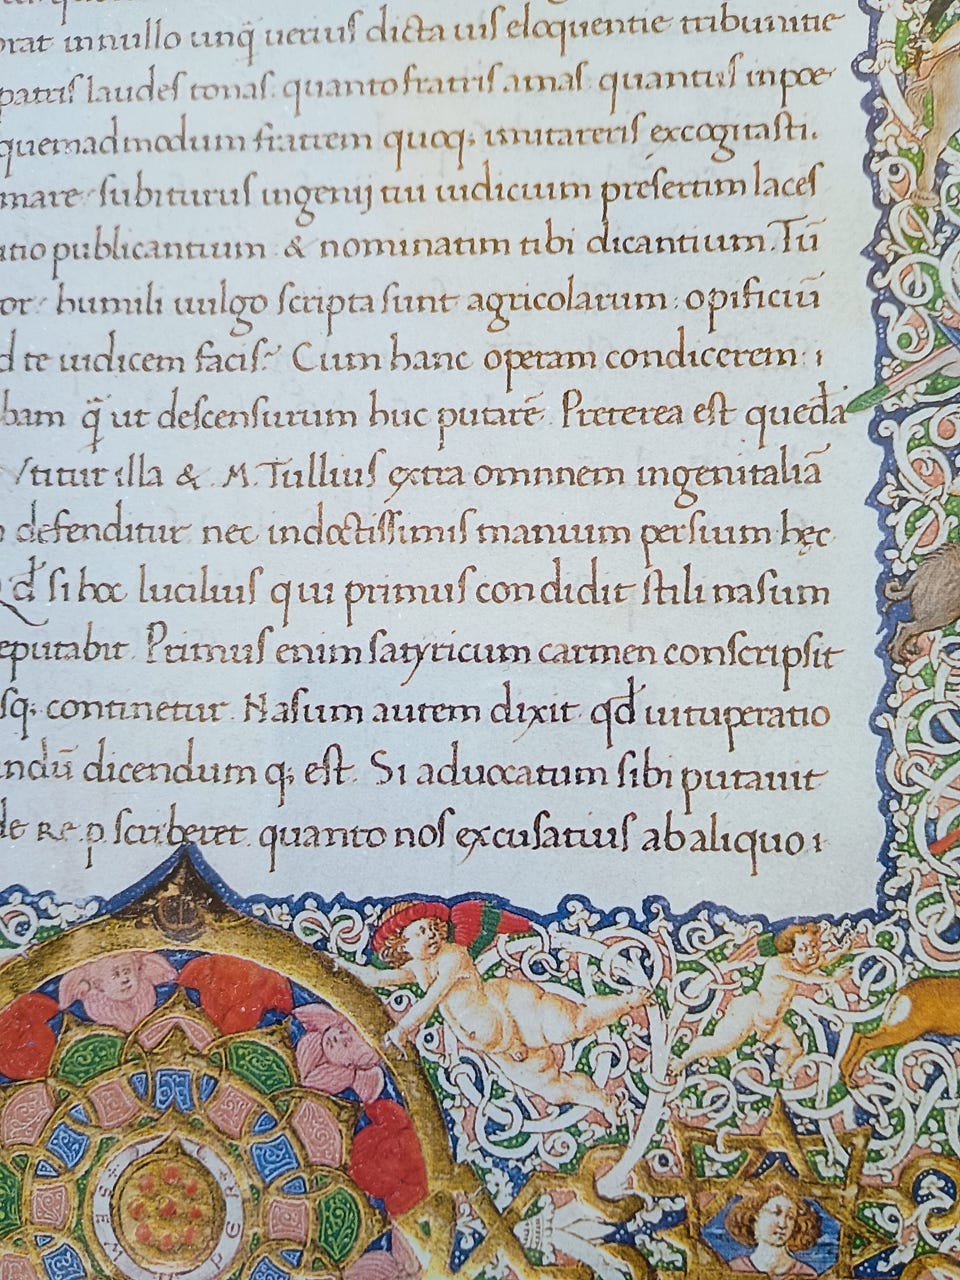 orat in nullo unq̃ uerius dicta uis eloquentie tribuitur e
patris laudes tonas: quanto fratris amas: quantus in poe
quemadmodum fratrem quoq; imitareris excogitasti.
mare subiturus ingenij tui iudicium presertim laces
publicantium & nominatim tibi dicantium. Tū
or: humili uulgo scripta sunt agricolarum: opificiū
d te iudicem facis? Cum hanc operam condicerem: i
bam q̃ ut descensurum huc putarē. Preterea est quedā
Vtitur illa & M. Tullius extra omnnem ingenij talia
defenditur nec indoctissimis manium persium hęc
qd̄ si hoc lucilius qui primus condidit stili nasum
eputabit. Primus enim satyricum carmen conscripsit
sq; continetur. Nasum autem dixit qd̄ uituperatio
ndū dicendum q; est. Si aduocatum sibi putauit
de Re p scriberet quanto nos excusatius ab aliquo i
SEMPER